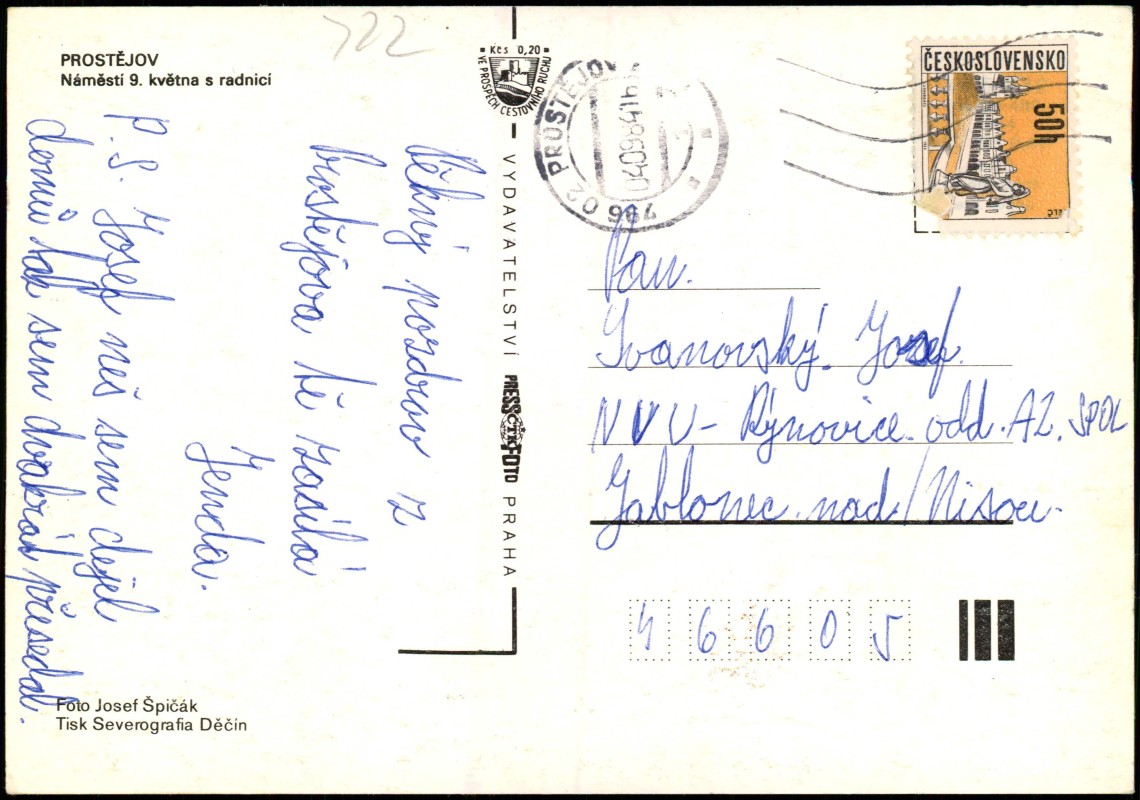 722
PROSTĚJOV
Náměstí 9. května s radnicí
Pěkný pozdrav z
Prostějova tě zasílá
Jenda.
P.S. Josef než sem dejel
domů tak sem dvakrát přesedal.
Foto Josef Špičák
Tisk Severografia Děčín
Kčs 0,20
VE PROSPĚCH CESTOVNÍHO RUCHU
VYDAVATELSTVÍ PRESSFOTO PRAHA
ČTK
796 02 PROSTĚJOV
ČESKOSLOVENSKO
50h
Pan.
Ivanovský. Josef.
NVU - Rýnovice. odd. A2. SPOL
Jablonec. nad/Nisou.
46605